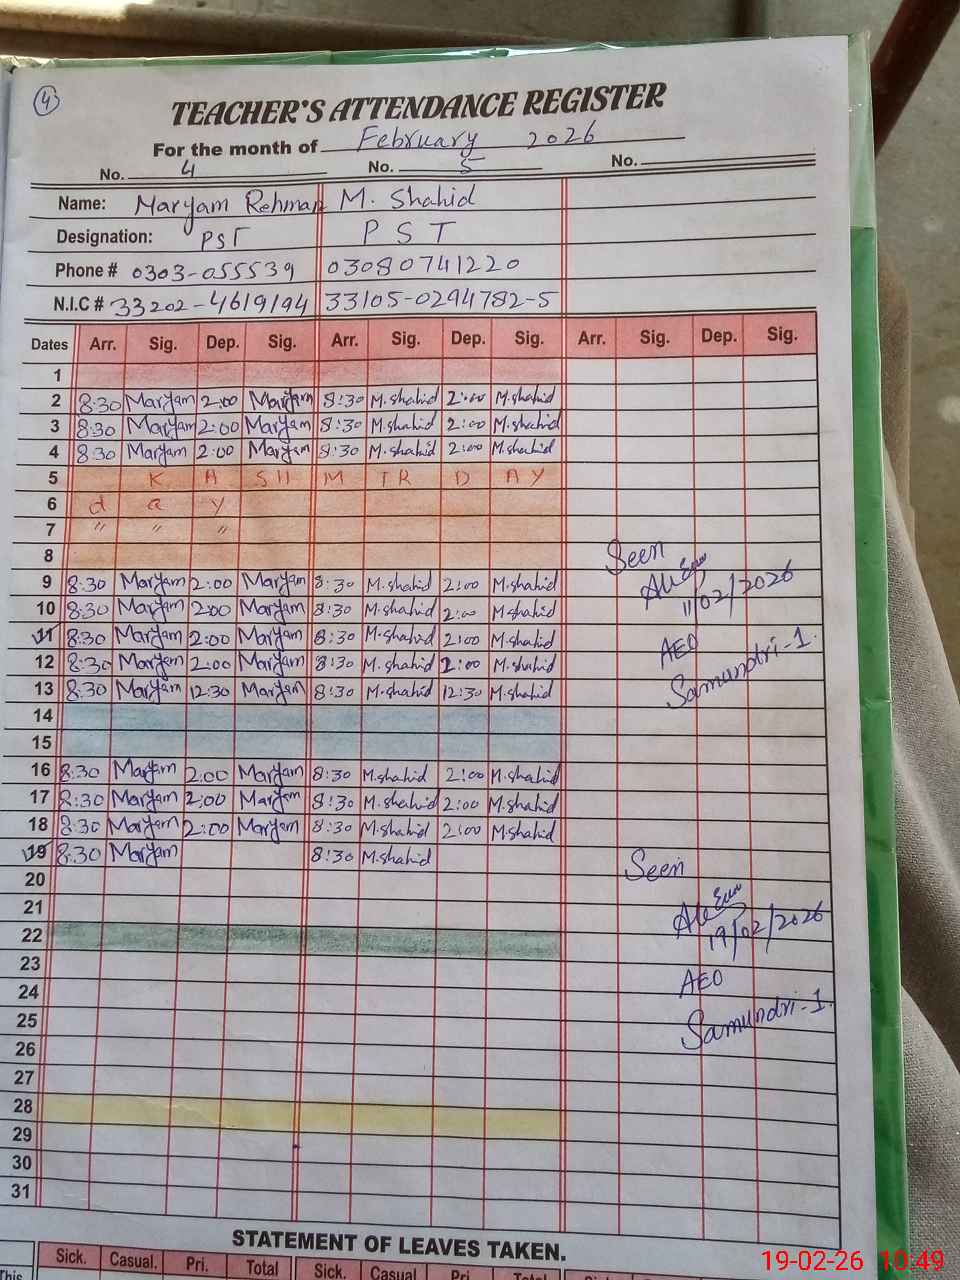 4
TEACHER'S ATTENDANCE REGISTER
For the month of February 2026
No. 4 No. 5 No.
Name: Maryam Rehman M. Shahid
Designation: PST PST
Phone # 0303-055539 03080741220
N.I.C # 33202-4619194 33105-0294782-5
Dates Arr. Sig. Dep. Sig. Arr. Sig. Dep. Sig. Arr. Sig. Dep. Sig.
1
2 8:30 Maryam 2:00 Maryam 8:30 M.shahid 2:00 M.shahid
3 8:30 Maryam 2:00 Maryam 8:30 M.shahid 2:00 M.shahid
4 8:30 Maryam 2:00 Maryam 8:30 M.shahid 2:00 M.shahid
5 K A SH M IR D AY
6 d a y
7 " " "
8
Seen
9 8:30 Maryam 2:00 Maryam 8:30 M.shahid 2:00 M.shahid
10 8:30 Maryam 2:00 Maryam 8:30 M.shahid 2:00 M.shahid
11/02/2026
11 8:30 Maryam 2:00 Maryam 8:30 M.shahid 2:00 M.shahid
AEO
12 8:30 Maryam 2:00 Maryam 8:30 M.shahid 2:00 M.shahid
Samundri-1.
13 8:30 Maryam 12:30 Maryam 8:30 M.shahid 12:30 M.shahid
14
15
16 8:30 Maryam 2:00 Maryam 8:30 M.shahid 2:00 M.shahid
17 8:30 Maryam 2:00 Maryam 8:30 M.shahid 2:00 M.shahid
18 8:30 Maryam 2:00 Maryam 8:30 M.shahid 2:00 M.shahid
19 8:30 Maryam 8:30 M.shahid
Seen
20
21
22
19/02/2026
23
24
AEO
25
Samundri-1.
26
27
28
29
30
31
STATEMENT OF LEAVES TAKEN.
This Sick. Casual. Pri. Total Sick. Casual Pri. Total Sick. Casual Pri. Total
19-02-26 10:49